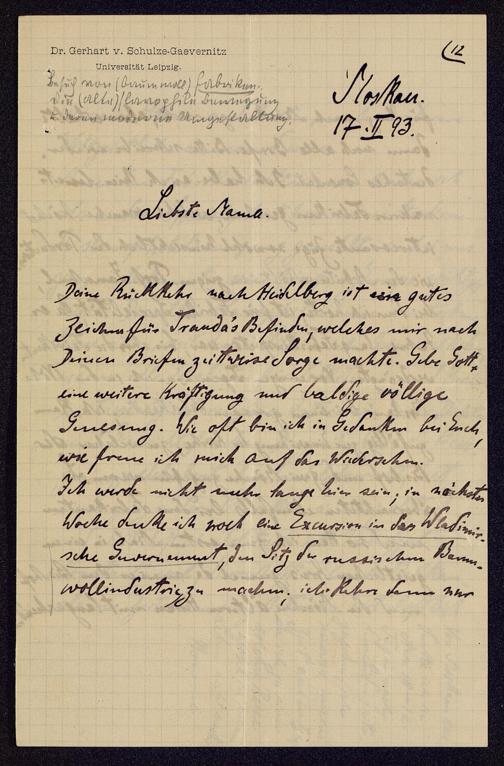 (12
Dr. Gerhart v. Schulze-Gaevernitz
Universität Leipzig.
Besuch von (Baumwoll) Fabriken.
Die (alte) slavophile Bewegung
& deren moderne Umgestaltung.
Moskau.
17. II 93.
Liebste Mama.
Deine Rückkehr nach Heidelberg ist ein gutes
Zeichen für Befinden, welches mir nach
Deinen Briefen zeitweise Sorge machte. Gebe Gott
eine weitere Kräftigung und baldige völlige
Genesung. Wie oft bin ich in Gedanken bei Euch,
wie freue ich mich auf das Wiedersehn.
Ich werde nicht mehr lange hier sein; in nächster
Woche denke ich noch eine Excursion in das Wladimir-
sche Guvernement, den Sitz der russischen Baum-
wollindustrie, zu machen; ich kehre dann nur